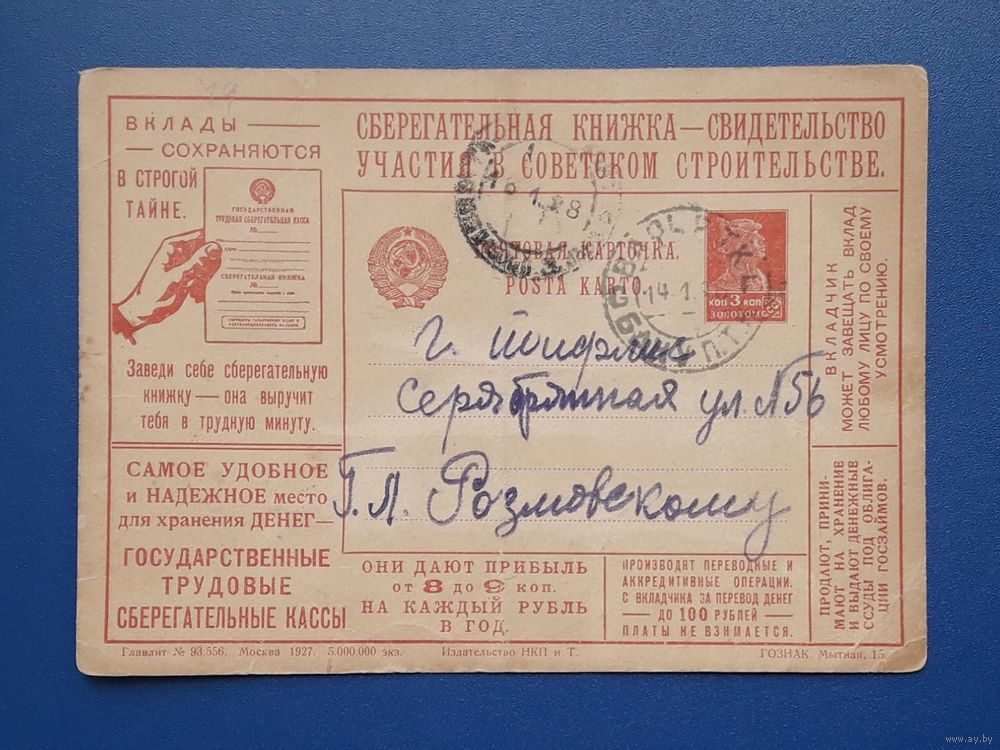 49
ВКЛАДЫ —
— СОХРАНЯЮТСЯ
В СТРОГОЙ
ТАЙНЕ.
ГОСУДАРСТВЕННАЯ
ТРУДОВАЯ СБЕРЕГАТЕЛЬНАЯ КАССА
№
СБЕРЕГАТЕЛЬНАЯ КНИЖКА
№
Заведи себе сберегательную
книжку — она выручит
тебя в трудную минуту.
САМОЕ УДОБНОЕ
и НАДЕЖНОЕ место
для хранения ДЕНЕГ—
ГОСУДАРСТВЕННЫЕ
ТРУДОВЫЕ
СБЕРЕГАТЕЛЬНЫЕ КАССЫ
СБЕРЕГАТЕЛЬНАЯ КНИЖКА — СВИДЕТЕЛЬСТВО
УЧАСТИЯ В СОВЕТСКОМ СТРОИТЕЛЬСТВЕ.
ПОЧТОВАЯ КАРТОЧКА.
POSTA KARTO.
КОП 3 КОП
ЗОЛОТОМ
14.1
г.
Серябряная ул. №56
Г. Л. Розмовскому
ОНИ ДАЮТ ПРИБЫЛЬ
от 8 до 9 коп.
НА КАЖДЫЙ РУБЛЬ
В ГОД.
ПРОИЗВОДЯТ ПЕРЕВОДНЫЕ И
АККРЕДИТИВНЫЕ ОПЕРАЦИИ.
С ВКЛАДЧИКА ЗА ПЕРЕВОД ДЕНЕГ
— ДО 100 РУБЛЕЙ —
ПЛАТЫ НЕ ВЗИМАЕТСЯ.
ВКЛАДЧИК
МОЖЕТ ЗАВЕЩАТЬ ВКЛАД
ЛЮБОМУ ЛИЦУ ПО СВОЕМУ
УСМОТРЕНИЮ.
ПРОДАЮТ, ПРИНИ-
МАЮТ НА ХРАНЕНИЕ
И ВЫДАЮТ ДЕНЕЖНЫЕ
ССУДЫ ПОД ОБЛИГА-
ЦИИ ГОСЗАЙМОВ.
Главлит № 93.556. Москва 1927. 5.000.000 экз. Издательство НКП и Т. ГОЗНАК. Мытная,
www.ay.by